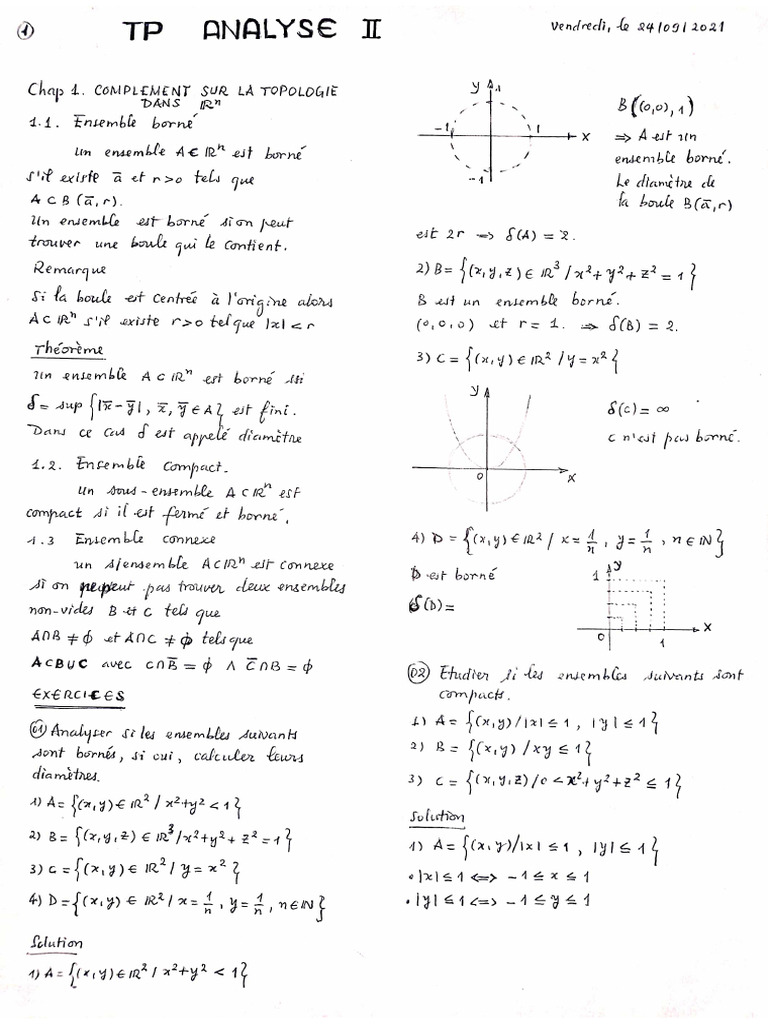 1
TP ANALYSE II
Vendredi, le 24/09/2021
Chap 1. COMPLEMENT SUR LA TOPOLOGIE
DANS ℝⁿ
1.1. Ensemble borné
Un ensemble A∈ℝⁿ est borné
s'il existe ā et r>0 tels que
A⊂B(ā,r).
Un ensemble est borné si on peut
trouver une boule qui le contient.
Remarque
Si la boule est centrée à l'origine alors
A⊂ℝⁿ s'il existe r>0 tel que |x|<r
Théorème
Un ensemble A⊂ℝⁿ est borné ssi
δ= sup{|x̄-ȳ|, x̄,ȳ∈A} est fini.
Dans ce cas δ est appelé diamètre
1.2. Ensemble Compact.
Un sous-ensemble A⊂ℝⁿ est
compact si il est fermé et borné.
1.3 Ensemble connexe
un s/ensemble A⊂ℝⁿ est connexe
si on peut pas trouver deux ensembles
non-vides B et C tels que
A∩B ≠ ϕ et A∩C ≠ ϕ tels que
A⊂B∪C avec C∩B̄ = ϕ ∧ C̄∩B = ϕ
EXERCICES
01 Analyser si les ensembles suivants
sont bornés, si oui, calculer leurs
diamètres.
1) A={(x,y)∈ℝ²/x²+y²<1}
2) B={(x,y,z)∈ℝ³/x²+y²+z²=1}
3) C={(x,y)∈ℝ²/y=x²}
4) D={(x,y)∈ℝ²/x=1/n, y=1/n, n∈ℕ}
Solution
1) A={(x,y)∈ℝ²/x²+y²<1}
y
1
-1
1
x
-1
B((0,0),1)
⇒ A est un
ensemble borné.
Le diamètre de
la boule B(ā,r)
est 2r ⇒ δ(A) = 2.
2) B={(x,y,z)∈ℝ³/x²+y²+z²=1}
B est un ensemble borné.
(0,0,0) et r=1. ⇒ δ(B) = 2.
3) C={(x,y)∈ℝ²/y=x²}
y
0
x
δ(C)=∞
C n'est pas borné.
4) D={(x,y)∈ℝ²/x=1/n, y=1/n, n∈ℕ}
D est borné
δ(D)=
y
1
0
1
x
02 Etudier si les ensembles suivants sont
compacts.
1) A={(x,y)/|x|≤1, |y|≤1}
2) B={(x,y)/xy≤1}
3) C={(x,y,z)/0<x²+y²+z²≤1}
Solution
1) A={(x,y)/|x|≤1, |y|≤1}
• |x|≤1 ⟺ -1≤x≤1
• |y|≤1 ⟺ -1≤y≤1